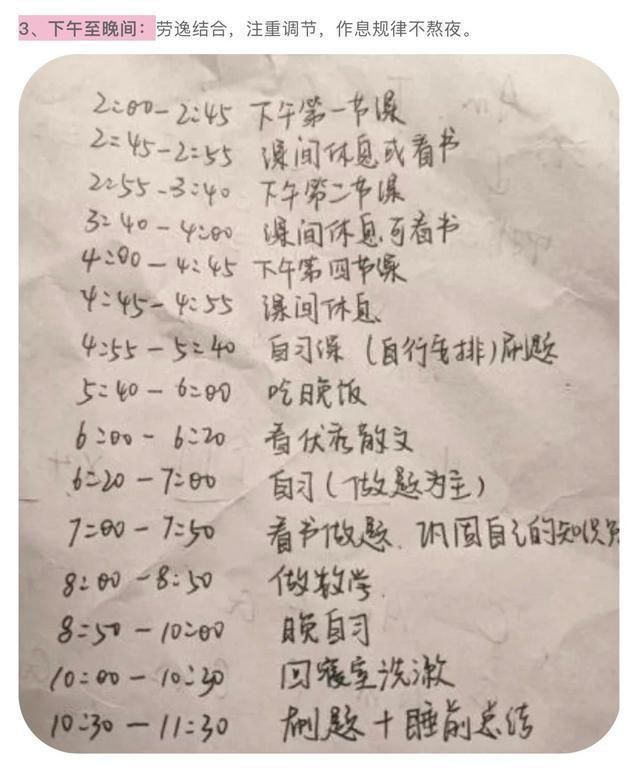 3、下午至晚间：劳逸结合，注重调节，作息规律不熬夜。
2:00-2:45 下午第一节课
2:45-2:55 课间休息或看书
2:55-3:40 下午第二节课
3:40-4:00 课间休息可看书
4:00-4:45 下午第四节课
4:45-4:55 课间休息
4:55-5:40 自习课(自行安排)刷题
5:40-6:00 吃晚饭
6:00-6:20 看优秀散文
6:20-7:00 自习(做题为主)
7:00-7:50 看书做题、巩固自己的知识
8:00-8:50 做数学
8:50-10:00 晚自习
10:00-10:30 回寝室洗漱
10:30-11:30 刷题+睡前总结